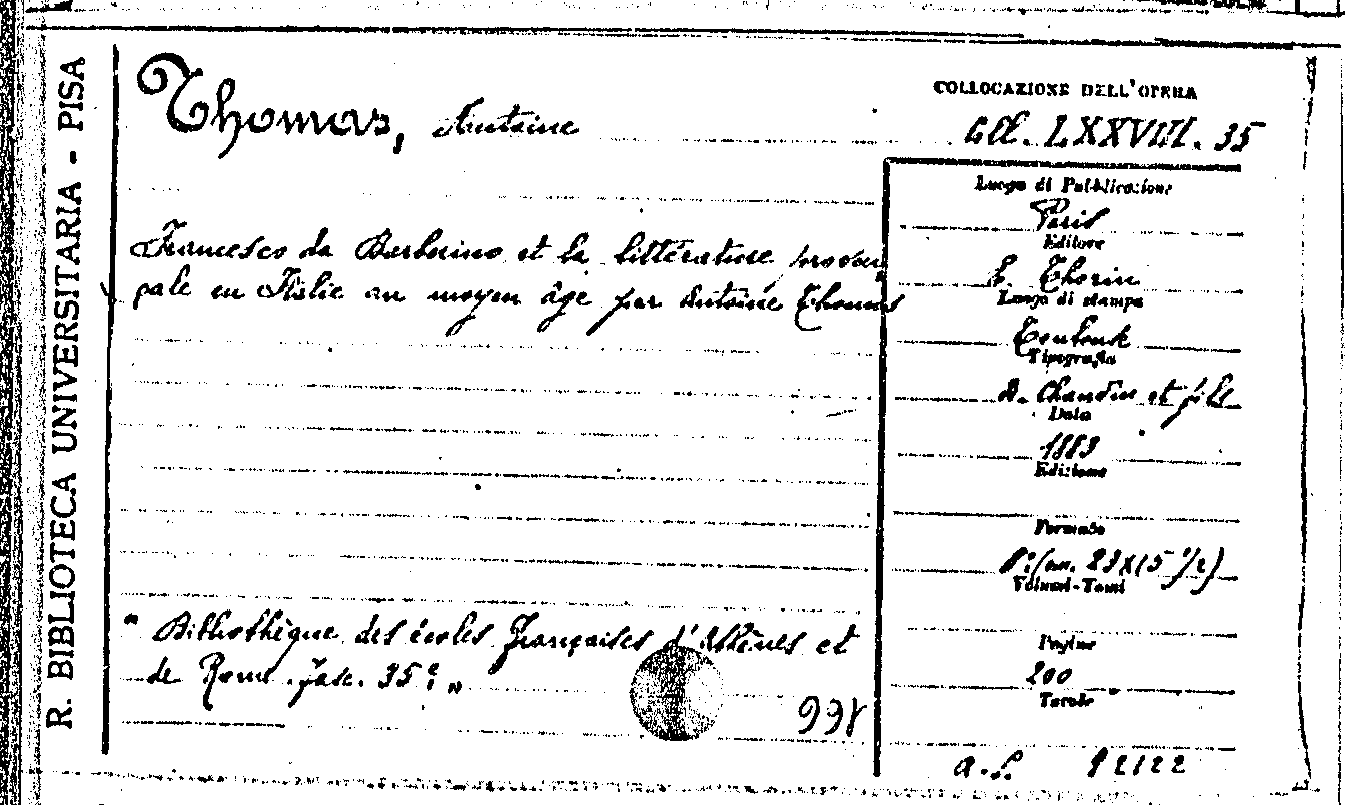 R. BIBLIOTECA UNIVERSITARIA - PISA
Thomas, Antoine
COLLOCAZIONE DELL'OPERA
LXXVIII. 35
Francesco da Barberino et la littérature proven
çale en Italie au moyen âge par Antoine Thomas
" Bibliothèque des écoles françaises d'Athènes et
de Rome. fasc. 35e "
998
Luogo di Pubblicazione
Paris
Editore
E. Thorin
Luogo di stampa
Toulouse
Tipografia
A. Chauvin et fils
Data
1883
Edizione
Formato
8° (cm. 23x15 1/2)
Volumi-Tomi
Pagine
200
Tavole